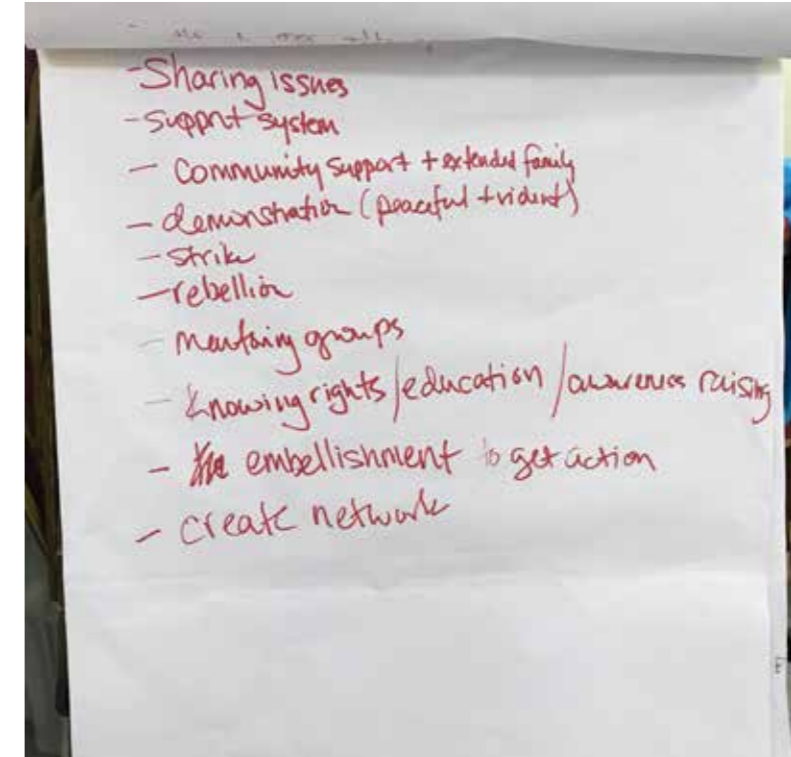 -Sharing issues
-support system
- Community support + extended family
- demonstration (peaceful + violent)
- strike
-rebellion
- mentoring groups
- knowing rights/education/awareness raising
- embellishment to get action
- create network